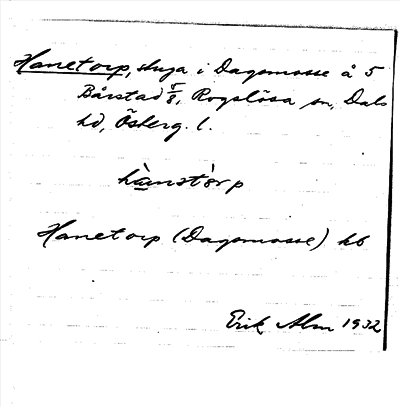 Hanetorp, stuga i Dagsmosse å 5
Bårstad 5/8, Rogslösa sn, Dals
hd, Österg. l.
hànstòrp
Hanetorp (Dagsmosse) kb
Erik Alm 1932